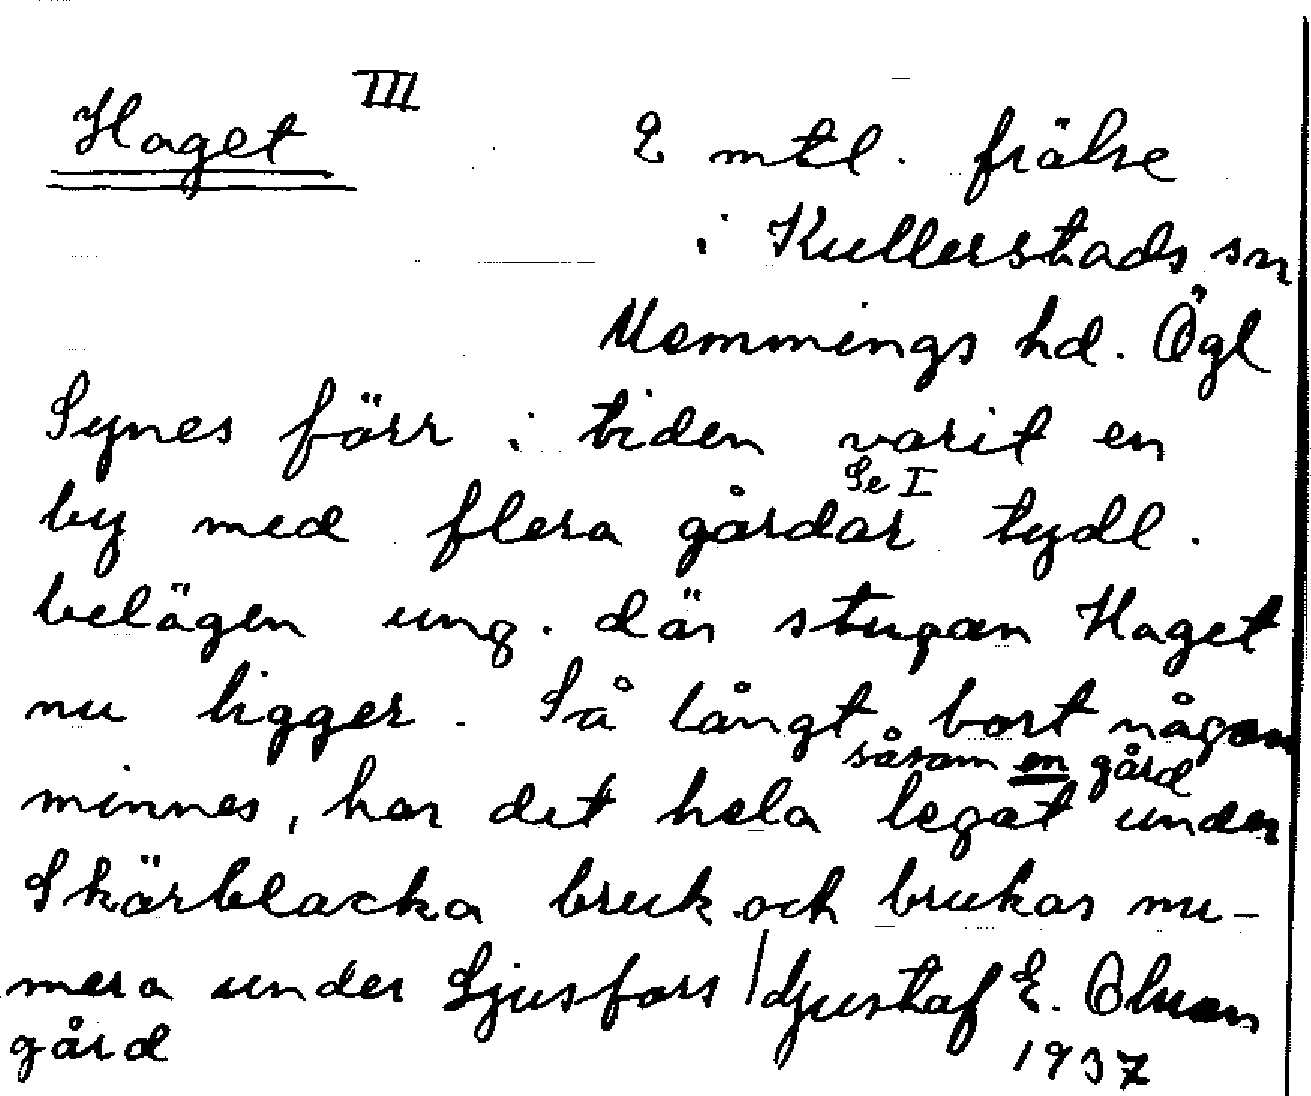 Haget III
2 mtl. frälse
i Kullerstads sn
Memmings hd. Ögl
Synes förr i tiden varit en
Se I
by med flera gårdar tydl.
belägen ung. där stugan Haget
nu ligger. Så långt bort någon
såsom en gård
minnes, har det hela legat under
Skärblacka bruk och brukas nu-
mera under Ljusfors / Gustaf E. Olsson
gård
1937